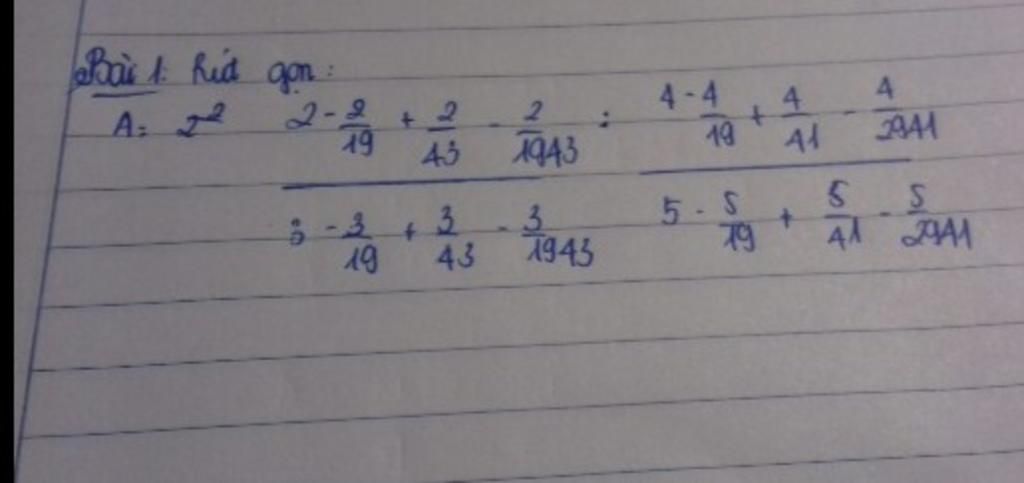 Bài 1: Rút gọn:
A = 2² (2 - 2/19 + 2/43 - 2/1943)/(3 - 3/19 + 3/43 - 3/1943) : (4 - 4/19 + 4/41 - 4/2941)/(5 - 5/19 + 5/41 - 5/2941)